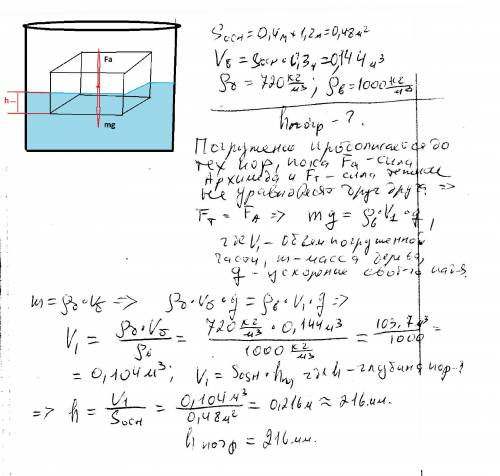 Fa
h
mg
Sосн = 0,4м × 1,2м = 0,48м²
Vб = Sосн · 0,3м = 0,144м³
ρб = 720 кг/м³; ρв = 1000 кг/м³
hпогр - ?
Погружение происходит до
тех пор, пока Fа - сила
Архимеда и Fт - сила тяжести
не уравновесят друг друга =>
Fт = FА => mg = ρв · V1 · g,
где V1 - объем погруженной
части, m - масса
g - ускорение
m = ρб · Vб => ρб · Vб · g = ρв · V1 · g =>
V1 = ρб · Vб / ρв = 720 кг/м³ · 0,144м³ / 1000 кг/м³ = 103,7м³ / 1000 =
= 0,104м³; V1 = Sосн · h, где h - глубина
=> h = V1 / Sосн = 0,104м³ / 0,48м² = 0,216м ≈ 216мм.
hпогр = 216мм.